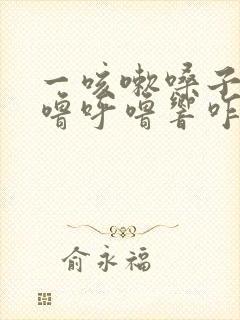 一咳嗽嗓子
噜呼噜响咋
俞永福